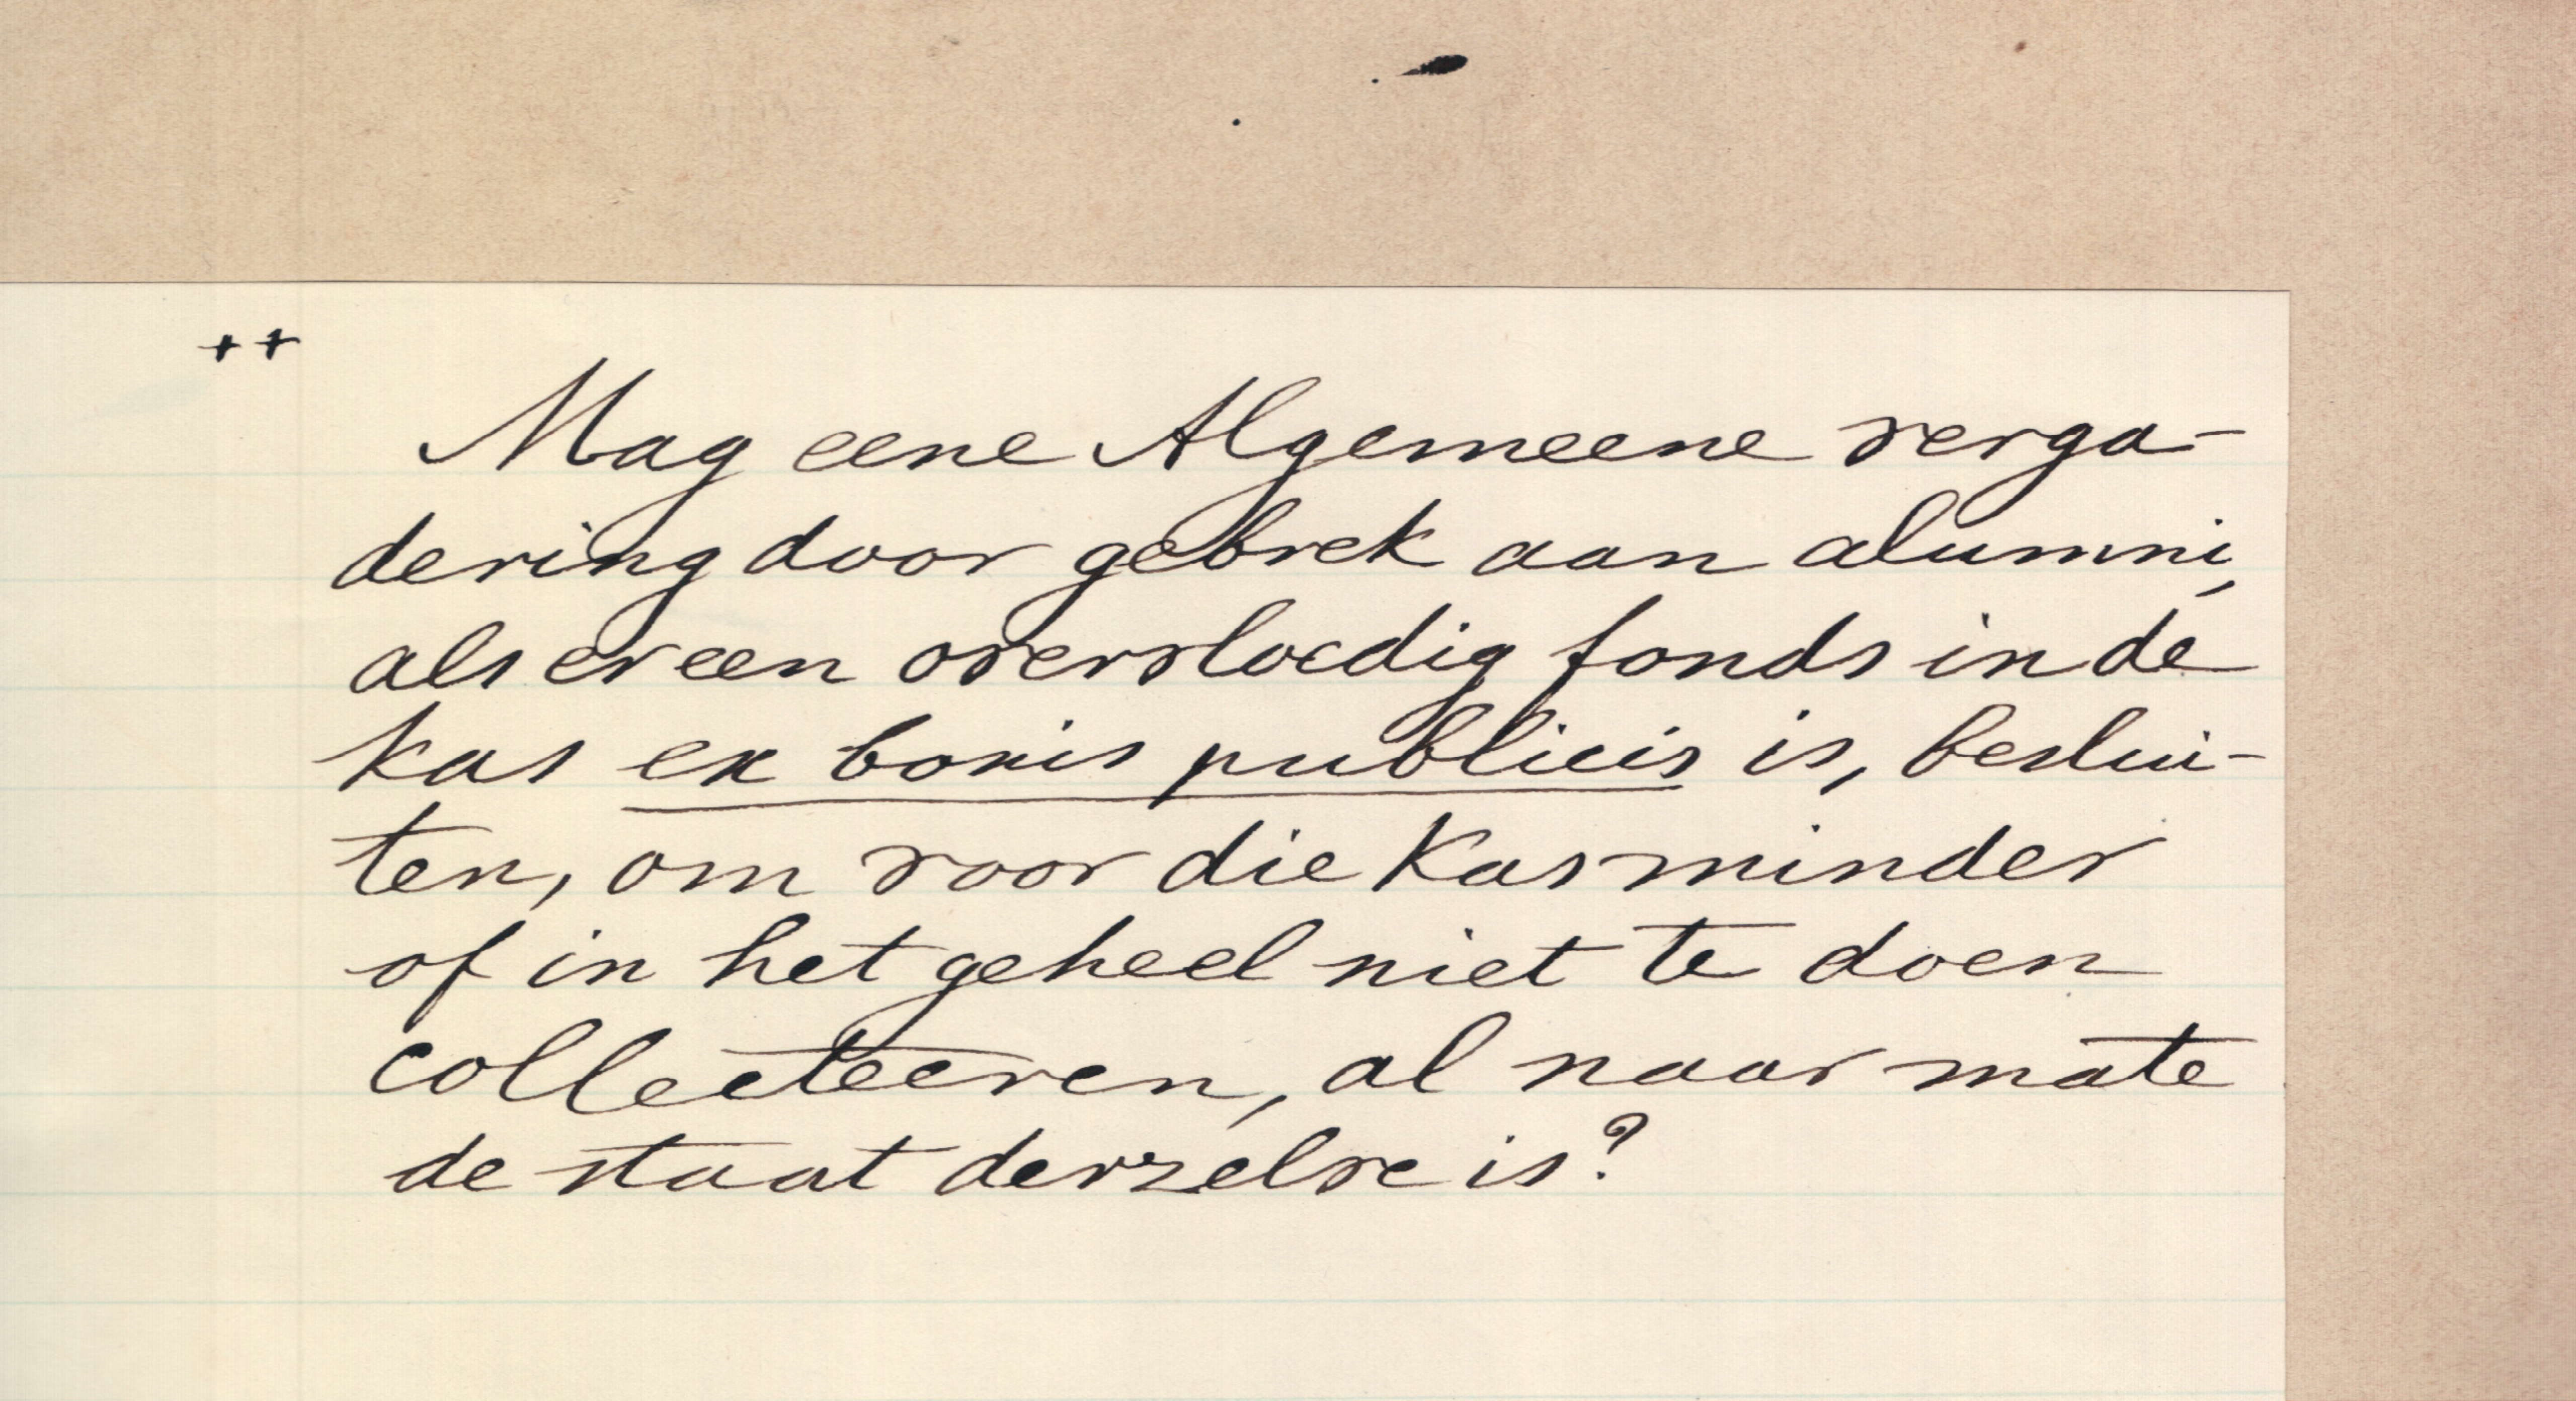 ++
Mag eene Algemeene verga-
dering door gebrek aan alumni,
als er een overvloedig fonds in de
kas ex bonis publicis is, beslui-
ten, om voor die kas minder
of in het geheel niet te doen
collecteeren, al naar mate
de staat derzelve is?